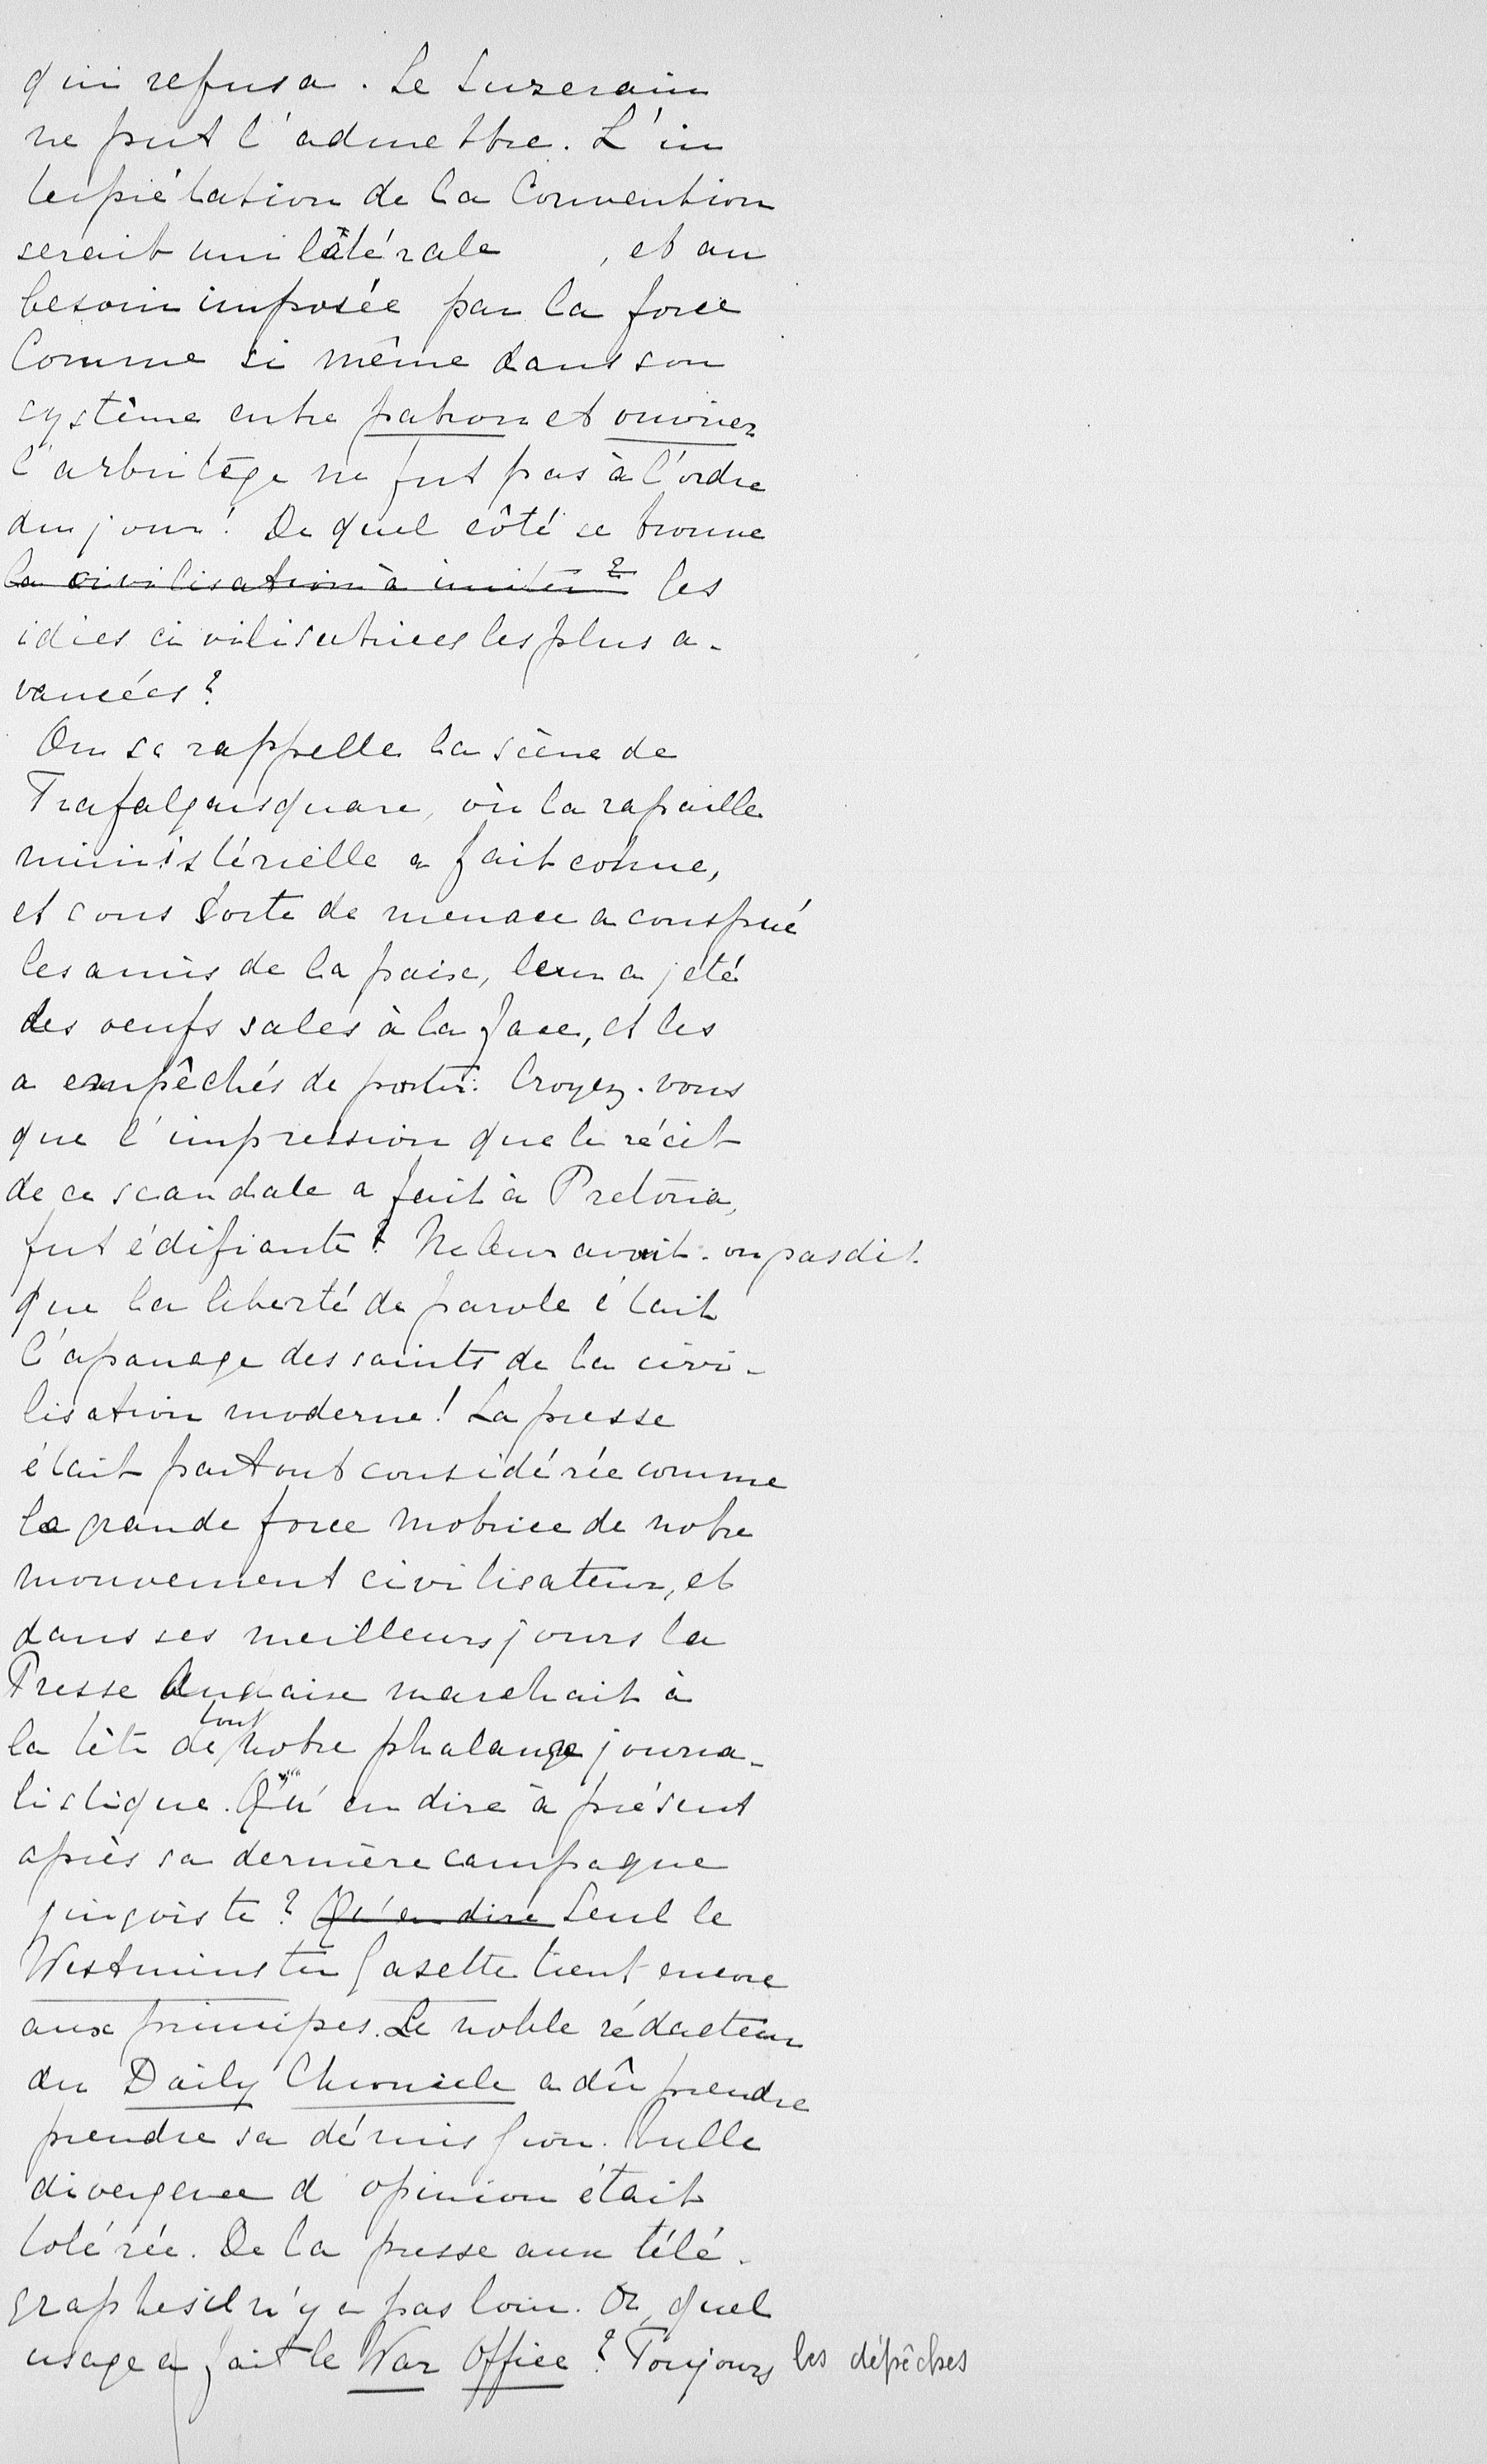 qui refusa. Le Suzerain
ne put l'admettre. L'in
terprétation de la Convention
serait unilatérale , et au
besoin imposée par la force
Comme si même dans son
système entre patron et ouvrier
l'arbitrage ne fut pas à l'ordre
du jour! De quel côté se trouve
la civilisation à imiter? les
idées civilisatrices les plus a-
vancées?
On se rappelle la scène de
Trafalgarsquare, où la rapaille
ministérielle a fait cohue,
et sous sorte de menace a conspué
les amis de la paix, leur a jeté
des oeufs sales à la face, et les
a empêchés de porter. Croyez-vous
que l'impression que le récit
de ce scandale a fait à Pretoria,
fut édifiante? Ne leur avait-on pas dit
que la liberté de parole était
l'apanage des saints de la civi-
lisation moderne! La presse
était partout considérée comme
la grande force motrice de notre
mouvement civilisateur, et
dans ses meilleurs jours la
Presse Anglaise marchait à
la tête de toute notre phalange journa-
listique. Qu'en dire à présent
après sa dernière campagne
jingoiste? Qu'en dire Seul le
Westminster Gasette tient encore
aux principes. Le noble rédacteur
du Daily Chronicle a dû prendre
prendre sa démission. Nulle
divergence d'opinion était
tolérée. De la presse aux télé-
graphes il n'y a pas loin. Or, quel
usage a fait le War Office? Toujours les dépêches